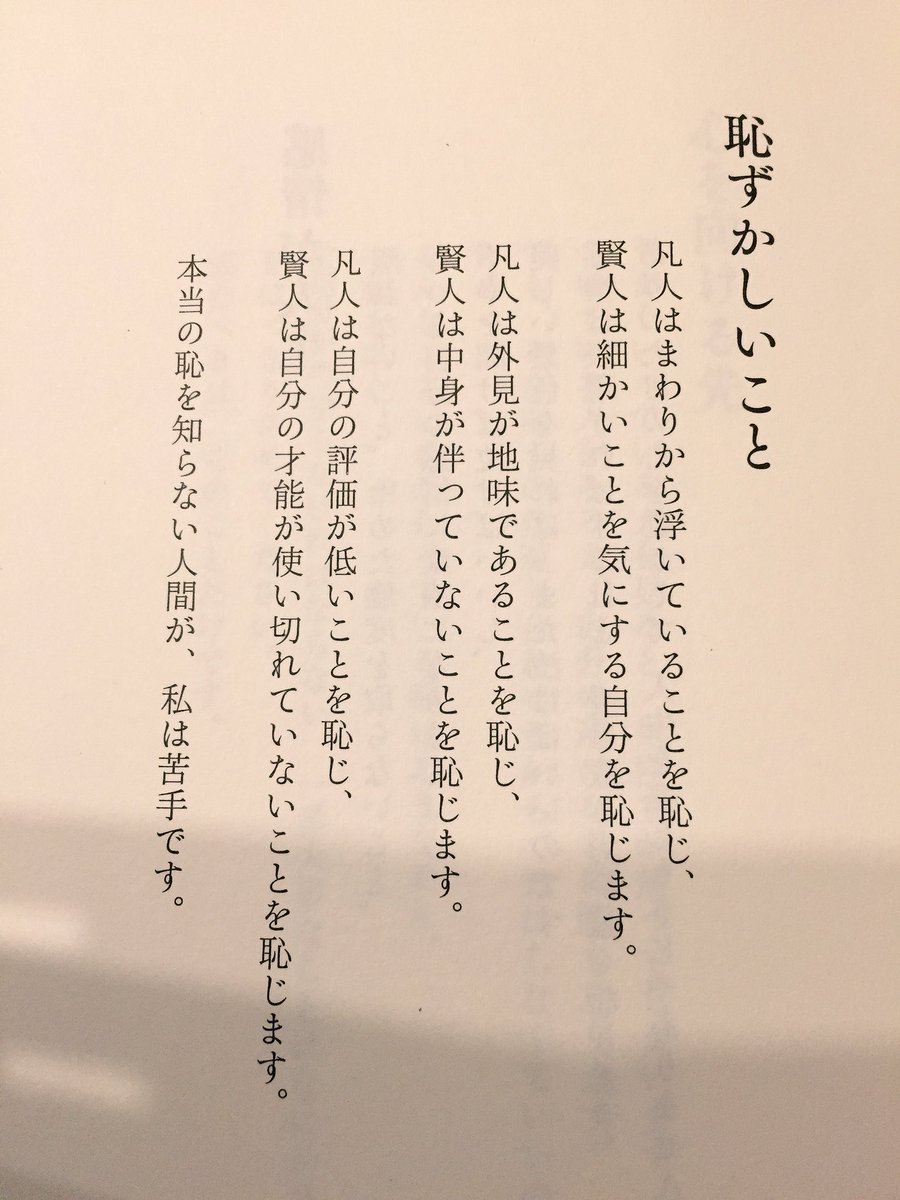 恥ずかしいこと
凡人はまわりから浮いていることを恥じ、
賢人は細かいことを気にする自分を恥じます。
凡人は外見が地味であることを恥じ、
賢人は中身が伴っていないことを恥じます。
凡人は自分の評価が低いことを恥じ、
賢人は自分の才能が使い切れていないことを恥じます。
本当の恥を知らない人間が、私は苦手です。